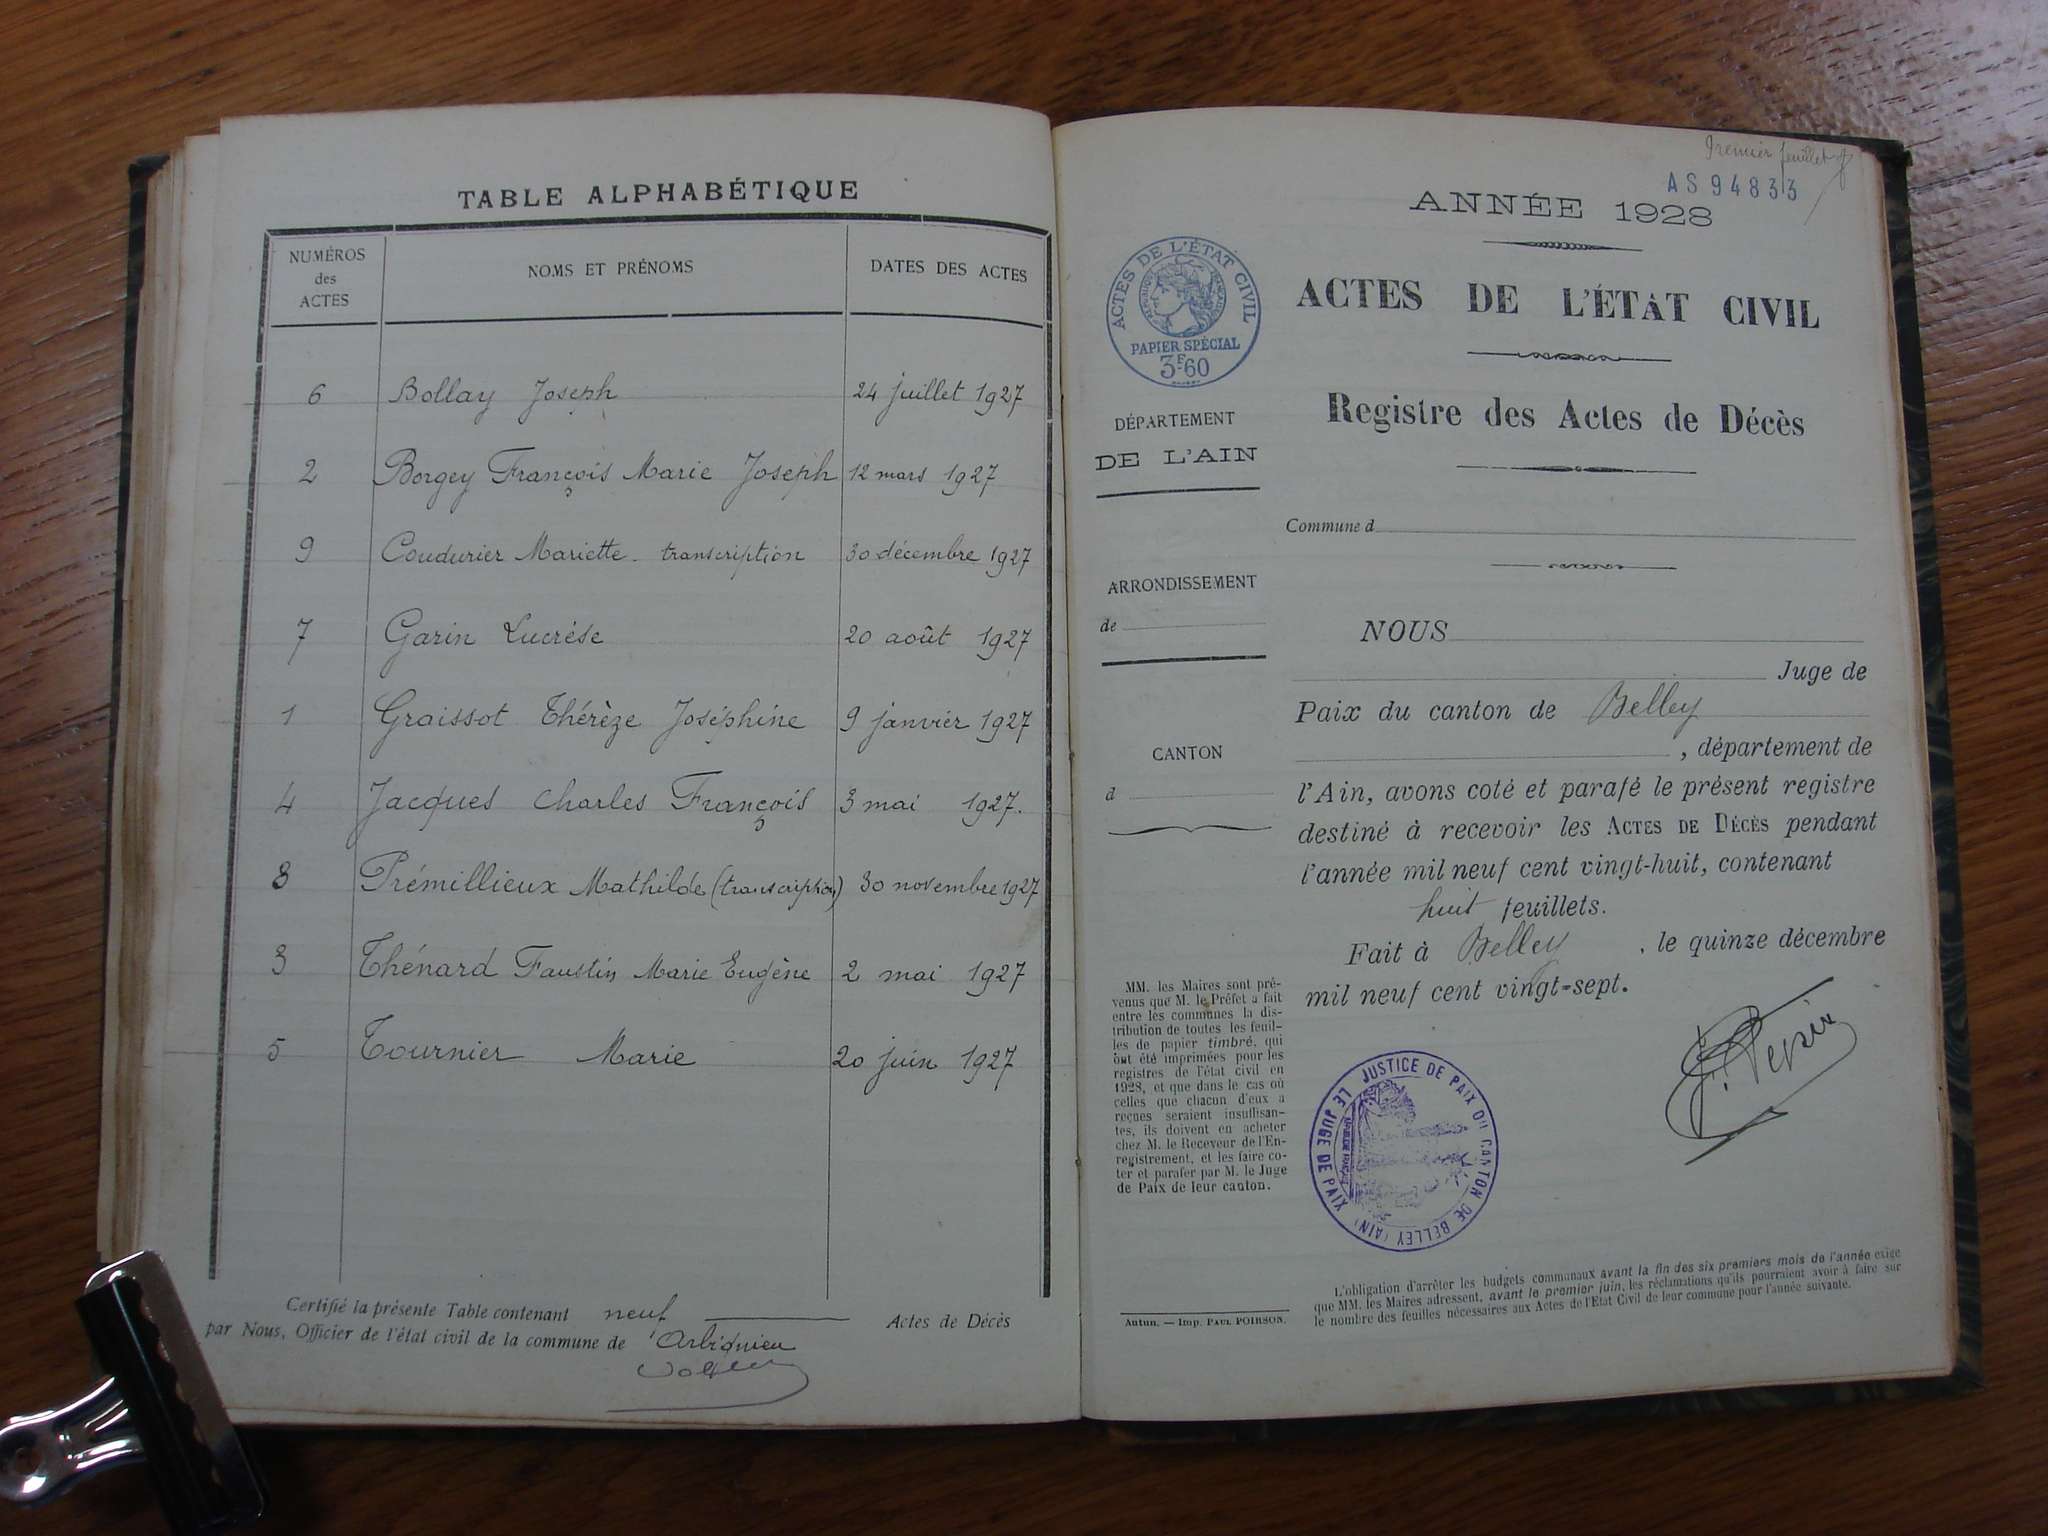 TABLE ALPHABÉTIQUE
NUMÉROS
des
ACTES
NOMS ET PRÉNOMS
DATES DES ACTES
6 Bollay Joseph 24 juillet 1927
2 Borgey François Marie Joseph 12 mars 1927
9 Coudurier Mariette - transcription 30 décembre 1927
7 Garin Lucrése 20 août 1927
1 Graissot Thérèze Joséphine 9 janvier 1927
4 Jacques Charles François 3 mai 1927.
8 Prémillieux Mathilde (transcription) 30 novembre 1927
3 Thénard Faustin Marie Eugène 2 mai 1927
5 Tournier Marie 20 juin 1927
Certifié la présente Table contenant neuf Actes de Décès
par Nous, Officier de l'état civil de la commune de Arbignieu
Premier feuillet
AS 94833
ANNÉE 1928
ACTES DE L'ÉTAT CIVIL
PAPIER SPÉCIAL
3F60
ACTES DE L'ÉTAT CIVIL
Registre des Actes de Décès
DÉPARTEMENT
DE L'AIN
Commune d
ARRONDISSEMENT
de
NOUS
Juge de
Paix du canton de Belley
CANTON
d
, département de
l'Ain, avons coté et parafé le présent registre
destiné à recevoir les ACTES DE DÉCÈS pendant
l'année mil neuf cent vingt-huit, contenant
huit feuillets.
Fait à Belley , le quinze décembre
mil neuf cent vingt-sept.
MM. les Maires sont pré-
venus que M. le Préfet a fait
entre les communes la dis-
tribution de toutes les feuil-
les de papier timbré, qui
ont été imprimées pour les
registres de l'état civil en
1928, et que dans le cas où
celles que chacun d'eux a
reçues seraient insuffisan-
tes, ils doivent en acheter
chez M. le Receveur de l'En-
registrement, et les faire co-
ter et parafer par M. le Juge
de Paix de leur canton.
JUSTICE DE PAIX DU CANTON DE BELLEY (AIN)
LE JUGE DE PAIX
Autun. — Imp. PAUL POIRSON.
L'obligation d'arrêter les budgets communaux avant la fin des six premiers mois de l'année exige
que MM. les Maires adressent, avant le premier juin, les réclamations qu'ils pourraient avoir à faire sur
le nombre des feuilles nécessaires aux Actes de l'Etat Civil de leur commune pour l'année suivante.